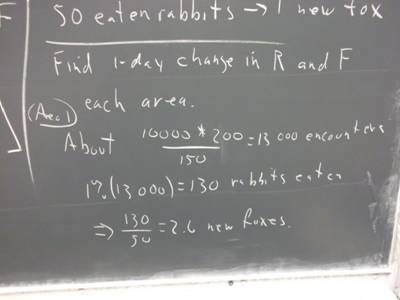 50 eaten rabbits → 1 new fox
Find 1-day change in R and F
(Area 1) each area.
About 10000 * 200 / 150 = 13000 encounters
1% (13000) = 130 rabbits eaten
⇒ 130/50 = 2.6 new foxes.